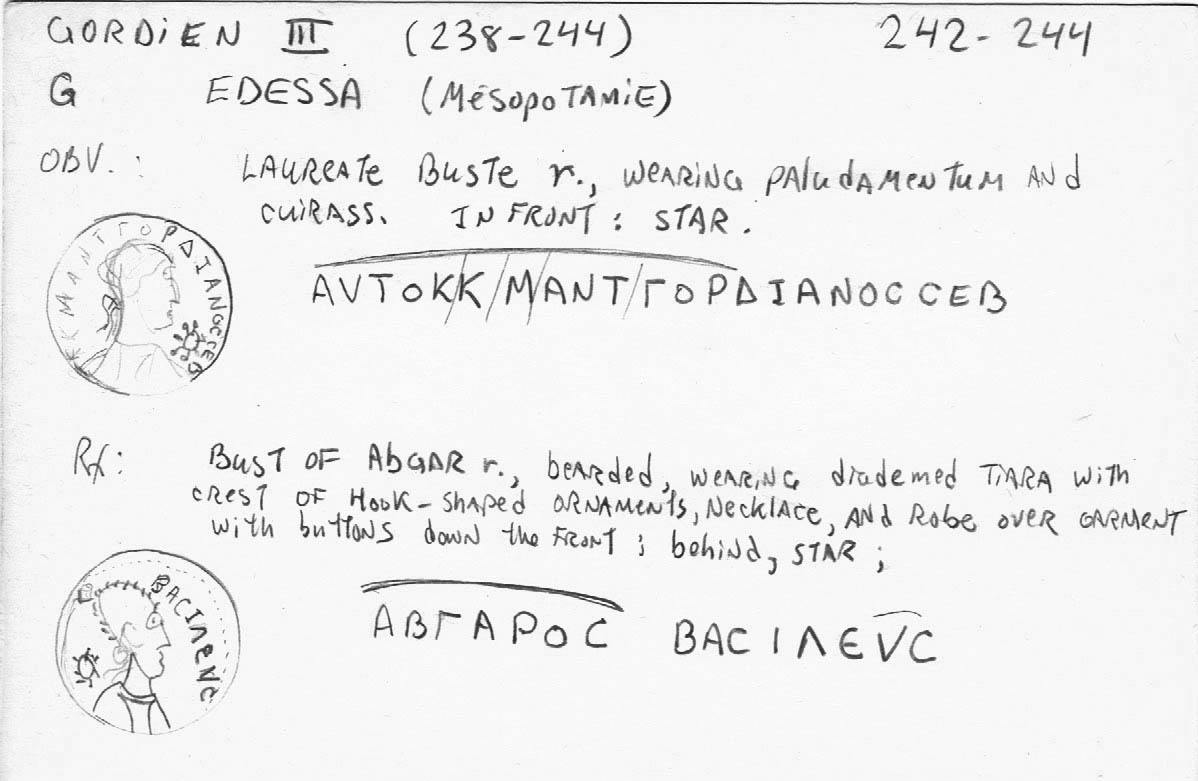 GORDiEN III (238-244) 242-244
G EDESSA (MésopoTAMiE)
OBV. : LAUREATE BUSTE r., WEARING PALUDAMENTUM AND
CUIRASS. IN FRONT : STAR.
ΑVΤΟΚ/Κ/Μ/ΑΝΤ/ΓΟΡΔΙΑΝΟC CΕΒ
ΚΚΜΑΝΤΓΟΡΔΙΑΝΟCCΕΒ
BUST OF AbGAR r., bEARded, WEARiNG diademed TiARA with
CREST OF HOOK-Shaped ORNAMENTS, NeckLACE, ANd Robe over GARMENT
with buttONS down the FRONT ; behiNd, STAR ;
ΒΑCΙΛΕVC
ΑΒΓΑΡΟC ΒΑCΙΛΕVC